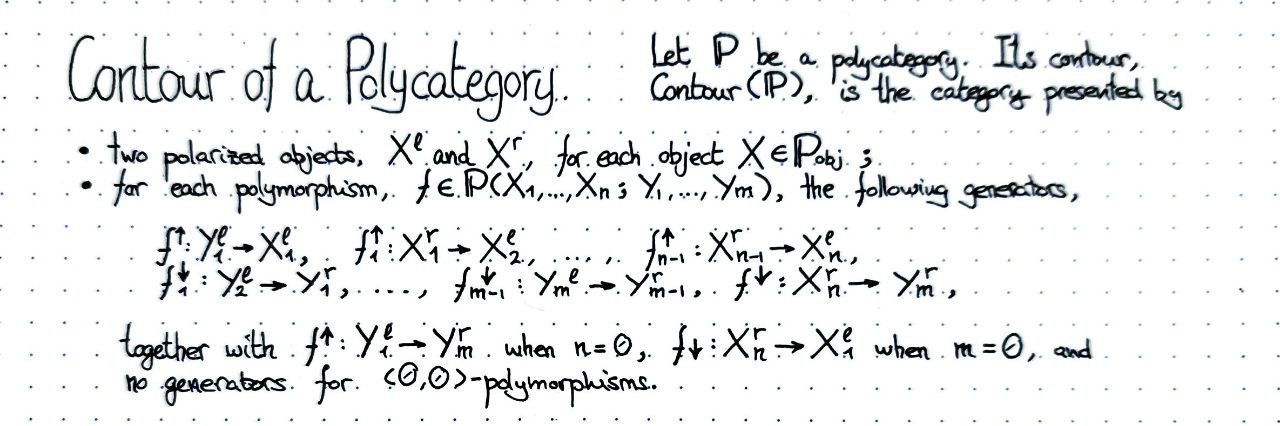 Contour of a Polycategory.
Let ℙ be a polycategory. Its contour,
Contour(ℙ), is the category presented by
• two polarized objects, Xˡ and Xʳ, for each object X ∈ ℙobj ;
• for each polymorphism, f ∈ ℙ(X₁,...,Xₙ ; Y₁,...,Yₘ), the following generators,
f↑ : Y₁ˡ → X₁ˡ, f₁↑ : X₁ʳ → X₂ˡ, ...., fₙ₋₁↑ : Xₙ₋₁ʳ → Xₙˡ,
f₁↓ : Y₂ˡ → Y₁ʳ, ...., fₘ₋₁↓ : Yₘˡ → Yₘ₋₁ʳ, f↓ : Xₙʳ → Yₘʳ,
together with f↑ : Y₁ˡ → Yₘʳ when n=0, f↓ : Xₙʳ → X₁ˡ when m=0, and
no generators for (0,0)-polymorphisms.